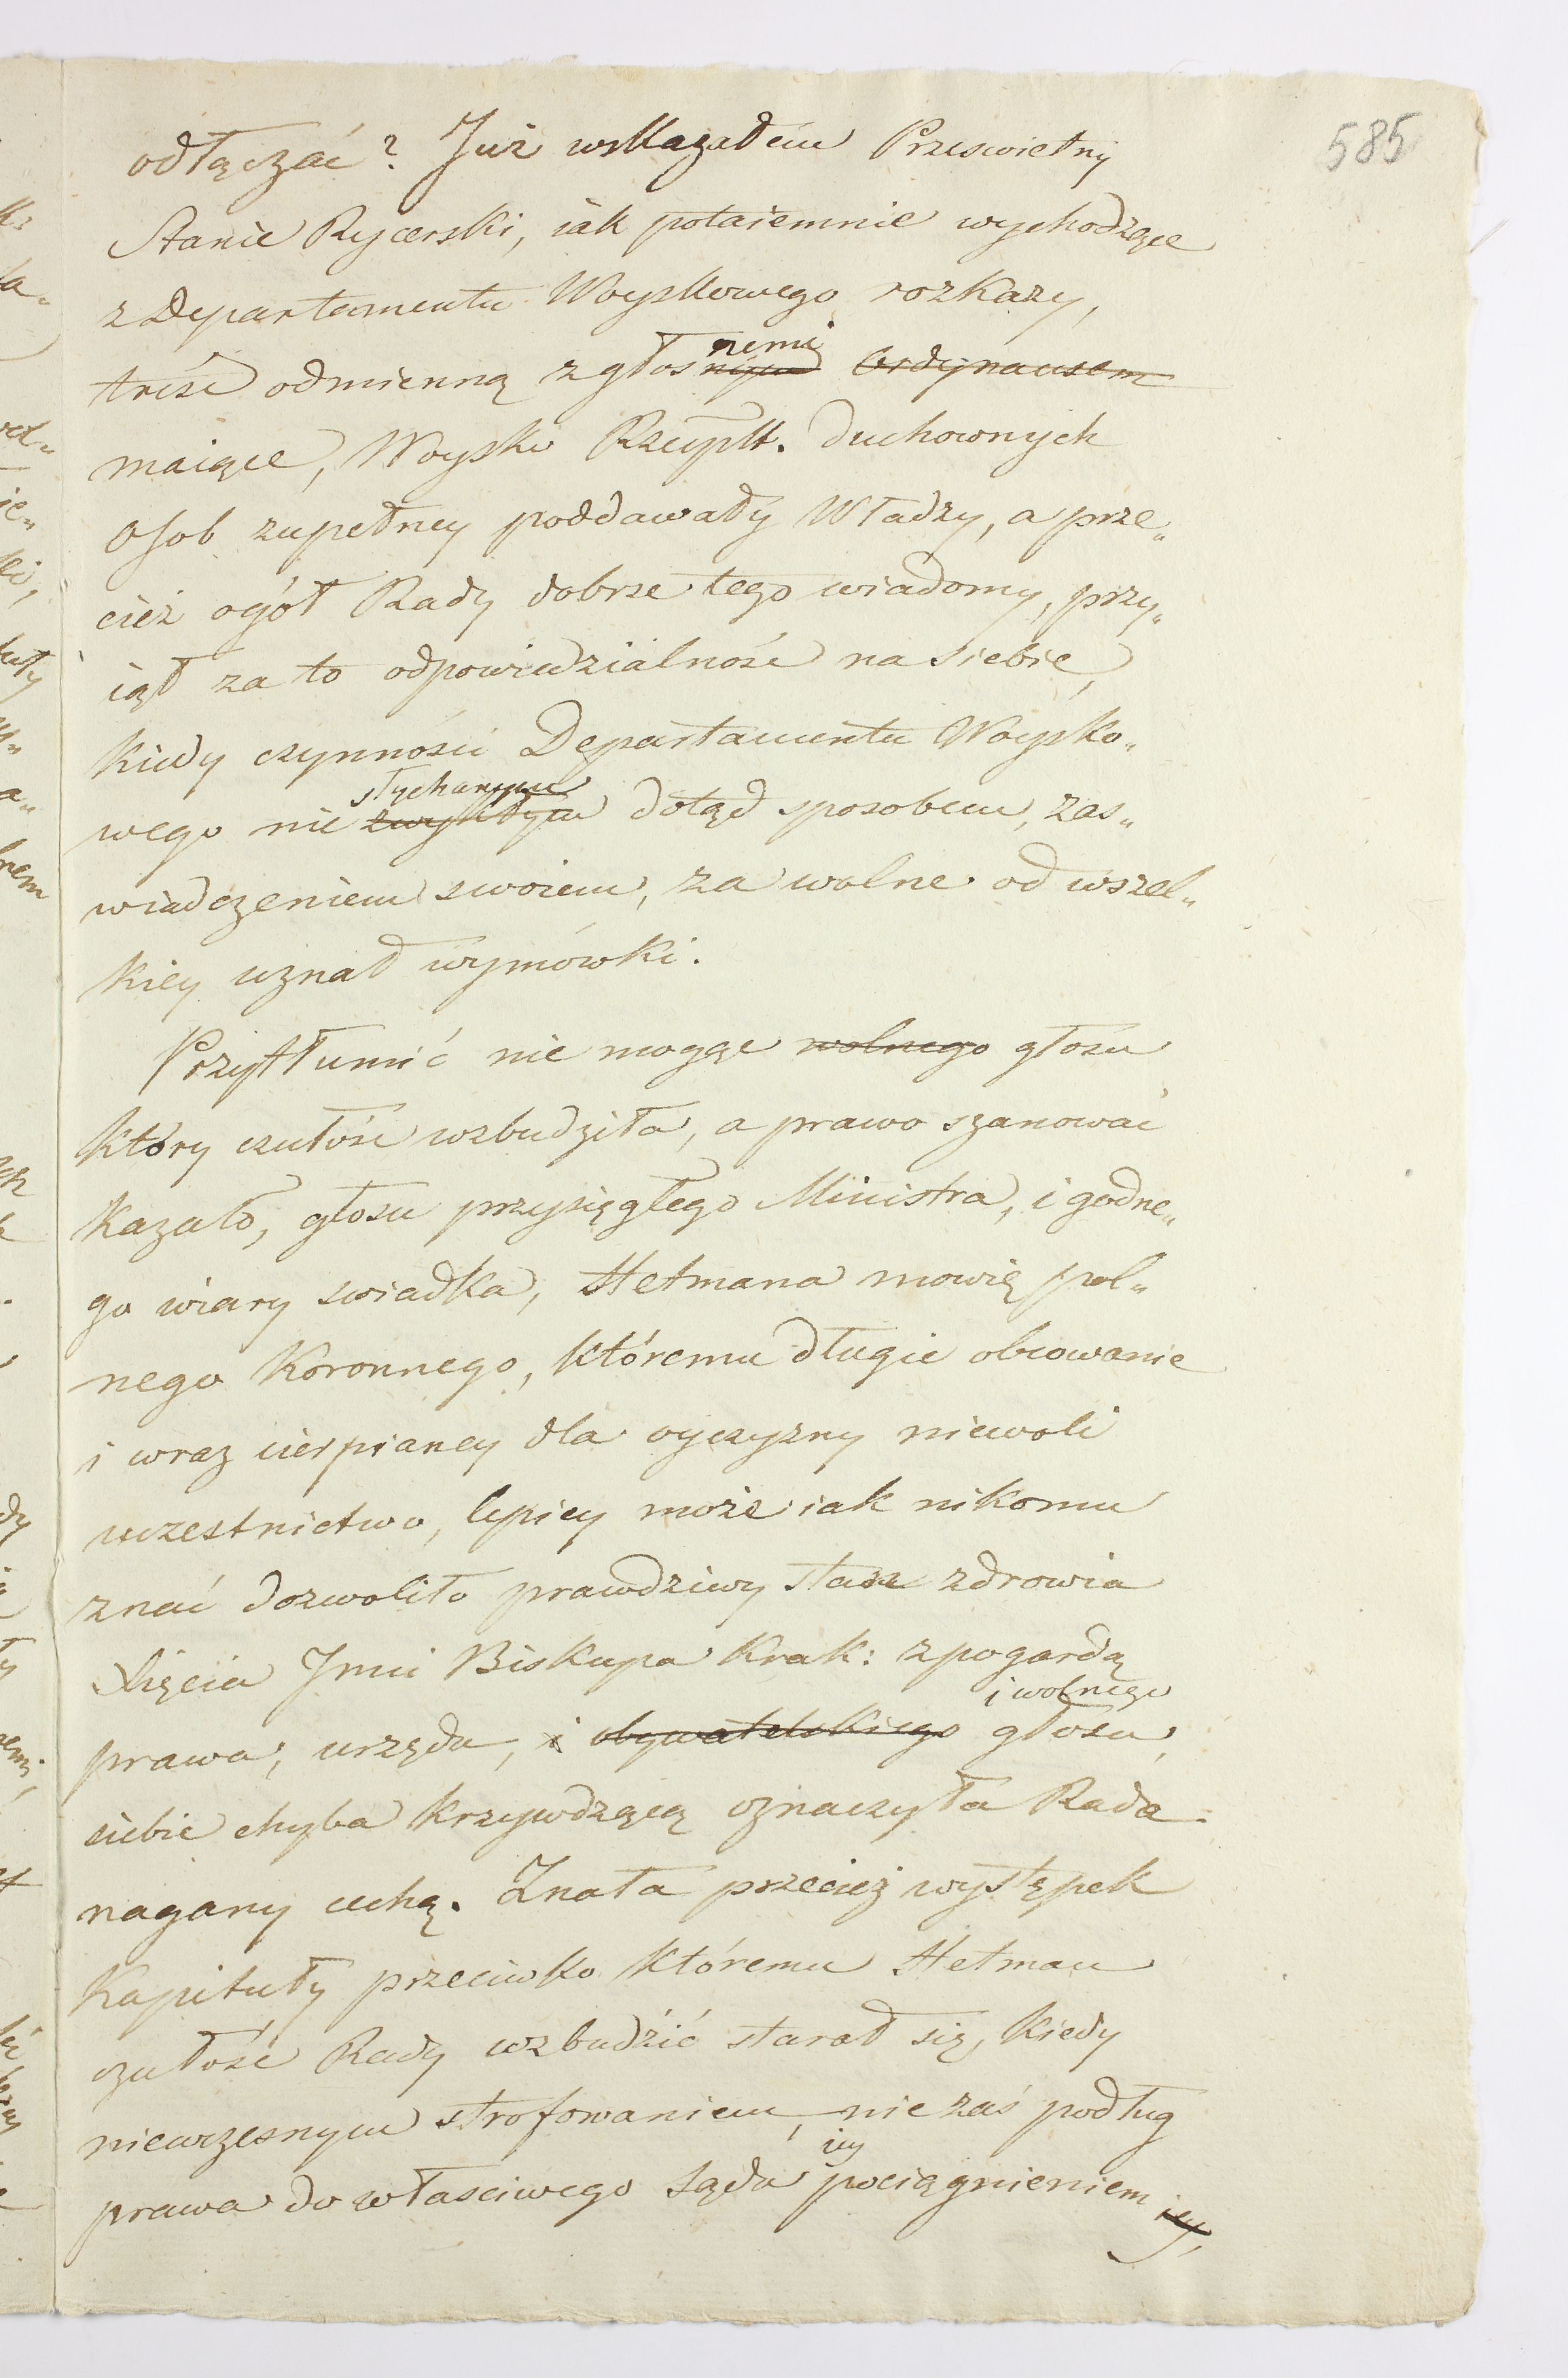 585
odłączać? Już wskazałem Prześwietny
Stanie Rycerski, iak potaiemnie wychodzące
z Departamentu Woyskowego rozkazy,
treść odmienną z głosnymi nemi Ordynansem
maiące, Woysko Rzeyplt. duchownych
Osob zupełney poddawały Władzy, a prze„
cież ogół Rady dobrze tego wiadomy, przy„
iął za to odpowiedzialność na siebie,
kiedy czynności Departamentu Woysko„
słychanym
wego nie zwykłym dotąd sposobem, zas„
wiadczeniem swoiem, za wolne od wszel„
kiey uznał wymówki.
Przytłumić nie mogąc wolnego głosu
który czułość wzbudziła, a prawo szanować
kazało, głosu przysięgłego Ministra, i godne„
go wiary swiadka, Hetmana mowię pol„
nego Koronnego, któremu długie obcowanie
i wraz cierpianey dla oyczyzny niewoli
uczestnictwo, lepiey może iak nikomu
znać dozwoliło prawdziwy stan zdrowia
Xięcia Jmci Biskupa Krak: z pogardą
i wolnego
prawa, urzędu, i obywatelskiego głosu,
siebie chyba krzywdzącą oznaczyła Rada
nagany cechą. Znała przecież występek
Kapituły przeciwko któremu Hetman
czułość Rady wzbudzić starał się, kiedy
niewczesnym strofowaniem, nie zaś podług
iey
prawa do właściwego Sądu pociągnieniem iey,